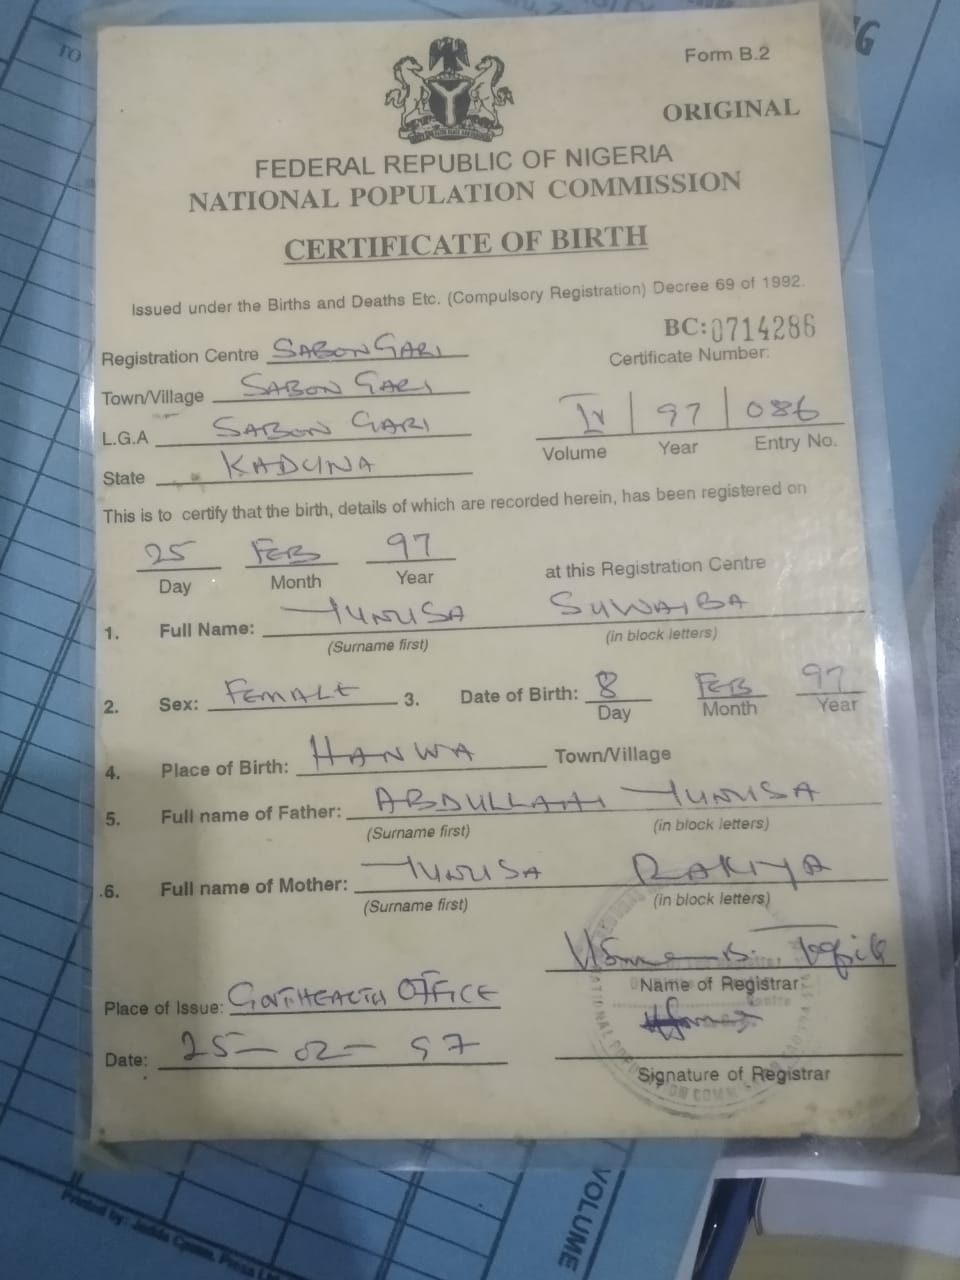 TO
NG
Form B.2
ORIGINAL
FEDERAL REPUBLIC OF NIGERIA
NATIONAL POPULATION COMMISSION
CERTIFICATE OF BIRTH
Issued under the Births and Deaths Etc. (Compulsory Registration) Decree 69 of 1992.
BC: 0714286
Certificate Number:
Registration Centre SABON GARI
Town/Village SABON GARI
L.G.A SABON GARI
State KADUNA
IV 97 086
Volume Year Entry No.
This is to certify that the birth, details of which are recorded herein, has been registered on
25 FEB 97
Day Month Year at this Registration Centre
1. Full Name: YUNUSA SUWAIBA
(Surname first) (in block letters)
2. Sex: FEMALE 3. Date of Birth: 8 FEB 97
Day Month Year
4. Place of Birth: HANWA Town/Village
5. Full name of Father: ABDULLAHI YUNUSA
(Surname first) (in block letters)
6. Full name of Mother: YUNUSA RAKIYA
(Surname first) (in block letters)
Name of Registrar
Place of Issue: GOVT HEALTH OFFICE
Date: 25-02-97
Signature of Registrar
VOLUME
Printed by: